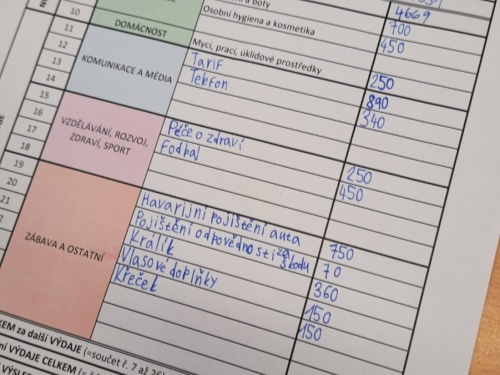 a boty
4669
10
Osobní hygiena a kosmetika
700
11
DOMÁCNOST
450
12
Mycí, prací, úklidové prostředky
250
13
KOMUNIKACE A MÉDIA
Tarif
890
14
Telefon
340
15
16
Péče o zdraví
250
17
VZDĚLÁVÁNÍ, ROZVOJ,
ZDRAVÍ, SPORT
Fodbal
450
18
19
20
Havarijní pojištění auta
750
21
Pojištění odpovědnosti za škodu
70
ZÁBAVA A OSTATNÍ
Králík
360
Vlasové doplňky
150
Křeček
150
KEM za další VÝDAJE (=součet ř. 7 až 26)
VÝDAJE CELKEM (=